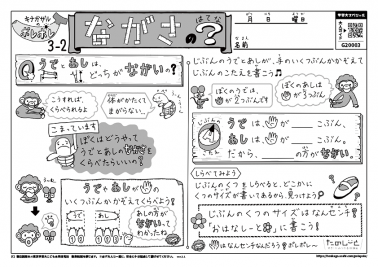 キナガザルの
ふしぎ
3-2
ながさの?
はてな
月 日 曜日
名前
G20003
うでと あしは、
どっちが ながいの?
こうすれば、
くらべられるよ
体がかたくて
まがらない。
こまっています
ぼくはどうやって
うでとあしのながさを
くらべたらいいの?
うでや あしが
のいくつぶんかかぞえてくらべよう!
あしの方が
ながいって
わかったね
じぶんのうでとあしが、手のいくつぶんかかぞえて
じぶんのこたえを書こう
ぼくのうでは、
が2つぶんです
ぼくのあしは
が3つぶん!
うでは、 が こぶん。
あしは、 が こぶん。
だから、 の方がながい。
しらべてみよう
じぶんのくつをしらべると、どこかに
くつのサイズが書いてあるから、見つけよう
じぶんのくつのサイズはなんセンチ
“おはなしーと”に書こう!
はなんセンチなんだろう